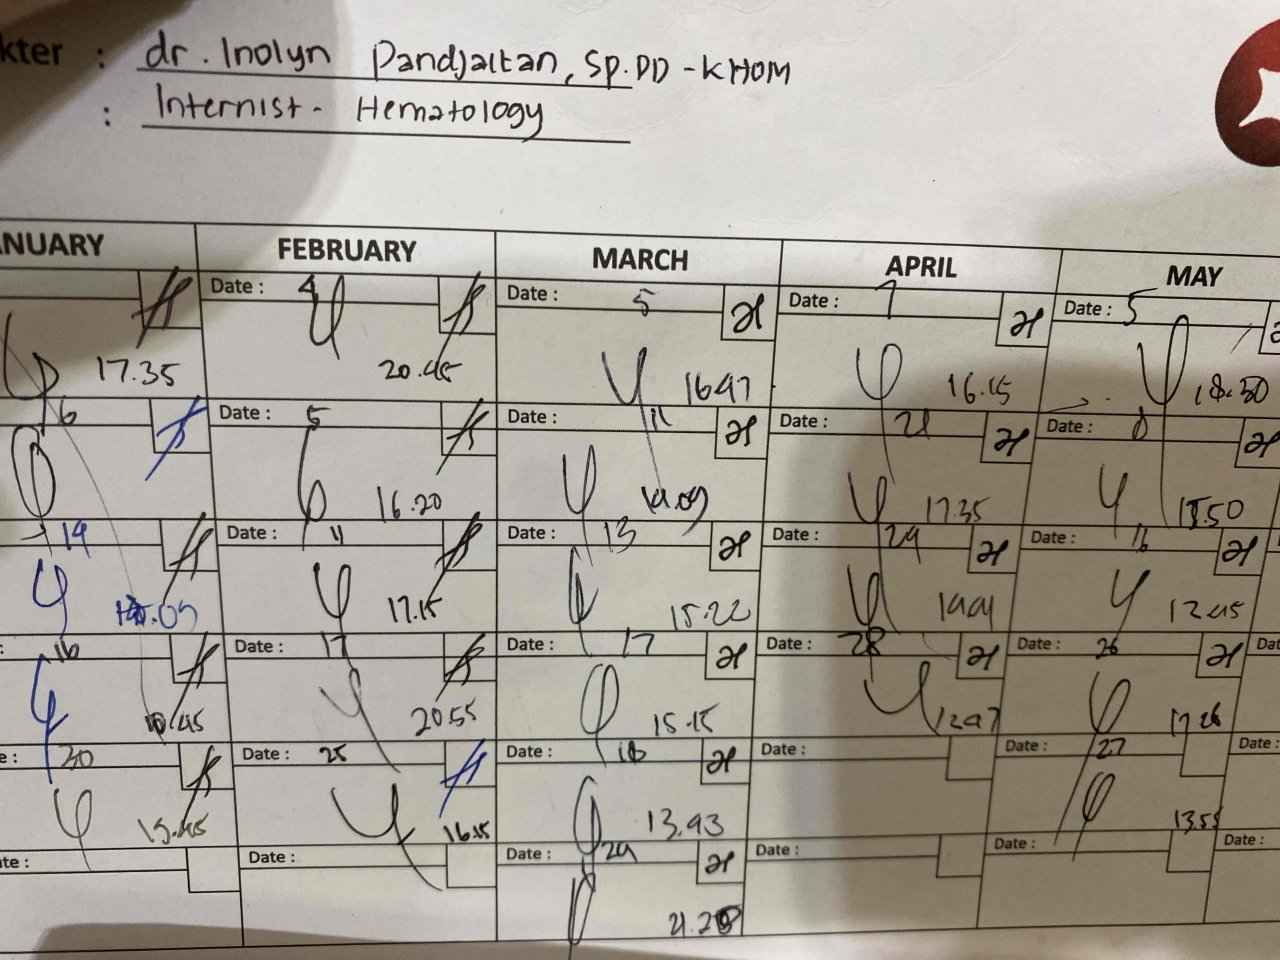 kter : dr. Inolyn Pandjaitan, Sp.PD-KHOM
: Internist - Hematology
NUARY FEBRUARY MARCH APRIL MAY
Date : 4 Date : 5 Date : 7 Date : 5
17.35 20.45 16.47 16.15 18.30
6 Date : 5 Date : 11 Date : 21 Date : 8
16.20 14.09 17.35 15.50
14 Date : 11 Date : 13 Date : 24 Date : 16
17.15 15.22 14.41 12.45
: 16 Date : 17 Date : 17 Date : 28 Date : 26 Dat
20.55 15.15 12.47 17.26
e : 30 Date : 25 Date : 18 Date : Date : 27 Date :
15.45 16.15 13.43 13.55
ate : Date : Date : 24 Date : Date : Date :
21.28